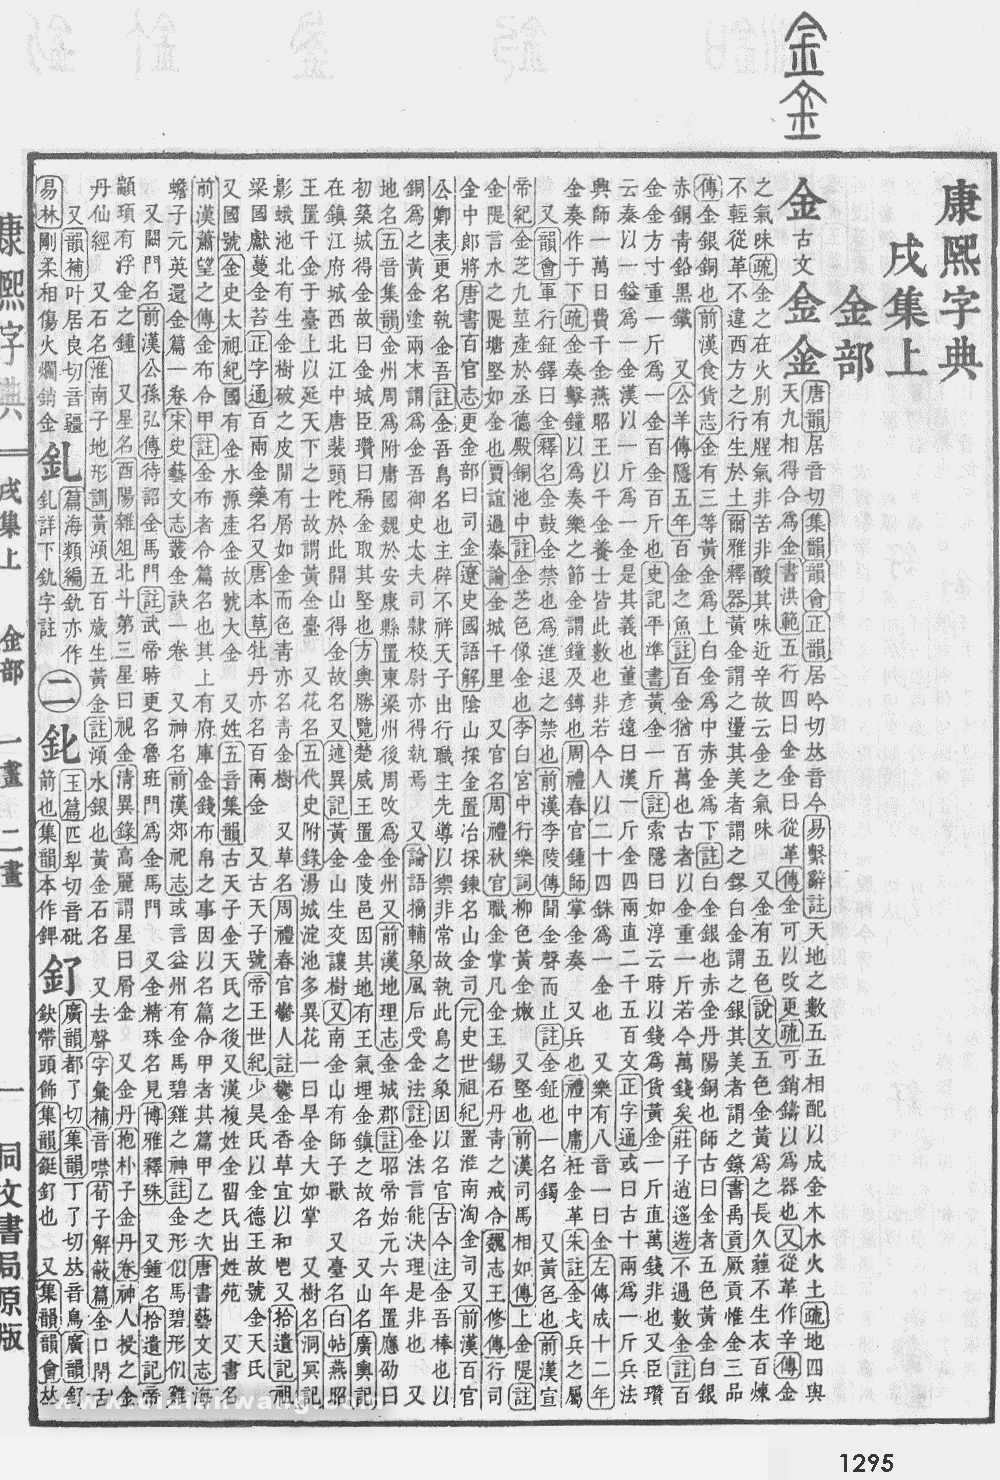 金
金
康熙字典
戌集上
金部
金古文金金
唐韻居音切集韻韻會正韻居吟切𠀤音今易繫辭註天地之數五五相配以成金木水火土疏地四與
天九相得合爲金書洪範五行四曰金金曰從革傳金可以攺更疏可銷鑄以爲器也又從革作辛傳金
之氣味疏金之在火別有腥氣非苦非酸其味近辛故云金之氣味 又金有五色說文五色金黃爲之長久薶不生衣百煉
不輕從革不違西方之行生於土爾雅釋器黃金謂之璗其美者謂之鏐白金謂之銀其美者謂之鐐書禹貢厥貢惟金三品
傳金銀銅也前漢食貨志金有三等黃金爲上白金爲中赤金爲下註白金銀也赤金丹陽銅也師古曰金者五色黃金白銀
赤銅靑鉛黑鐵 又公羊傳隱五年百金之魚註百金猶百萬也古者以金重一斤若今萬錢矣莊子逍遙遊不過數金註百
金金方寸重一斤爲一金百金百斤也史記平準書黃金一斤註索隱曰如淳云時以錢爲貨黃金一斤直萬錢非也又臣瓚
云秦以一鎰爲一金漢以一斤爲一金是其義也董彥遠曰漢一斤金四兩直二千五百文正字通或曰古十兩爲一斤兵法
興師一萬日費千金燕昭王以千金養士皆此數也非若今人以二十四銖爲一金也 又樂有八音一曰金左傳成十二年
金奏作于下疏金奏擊鐘以爲奏樂之節金謂鐘及鎛也周禮春官鍾師掌金奏 又兵也禮中庸衽金革朱註金戈兵之屬
又韻會軍行鉦鐸曰金釋名金鼓金禁也爲進退之禁也前漢李陵傳聞金聲而止註金鉦也一名鐲 又黃色也前漢宣
帝紀金芝九莖產於丞德殿銅池中註金芝色像金也李白宮中行樂詞柳色黃金嫩 又堅也前漢司馬相如傳上金隄註
金隄言水之隄塘堅如金也賈誼過秦論金城千里 又官名周禮秋官職金掌凡金玉錫石丹靑之戒令魏志王修傳行司
金中郎將唐書百官志更金部曰司金遼史國語解陰山採金置冶採鍊名山金司元史世祖紀置淮南淘金司又前漢百官
公卿表更名執金吾註金吾鳥名也主辟不祥天子出行職主先導以禦非常故執此鳥之象因以名官古今注金吾棒也以
銅爲之黃金塗兩末謂爲金吾御史大夫司隸校尉亦得執焉 又論語摘輔象風后受金法註金法言能決理是非也 又
地名五音集韻金州周爲附庸國魏於安康縣置東梁州後周攺爲金州又前漢地理志金城郡註昭帝始元六年置應劭曰
初築城得金故曰金城臣瓚曰稱金取其堅也方輿勝覽楚威王置金陵邑因其地有王氣埋金鎮之故名 又山名廣輿記
在鎮江府城西北江中唐裴頭陀於此開山得金故名又述異記黃金山生交讓樹又南金山有師子獸 又臺名白帖燕昭
王置千金于臺上以延天下之士故謂黃金臺 又花名五代史附錄湯城淀池多異花一曰旱金大如掌 又樹名洞冥記
影蛾池北有生金樹破之皮閒有屑如金而色靑亦名靑金樹 又草名周禮春官鬱人註鬱金香草宜以和鬯又拾遺記祖
梁國獻蔓金苔正字通百兩金藥名又唐本草牡丹亦名百兩金 又古天子號帝王世紀少昊氏以金德王故號金天氏
又國號金史太祖紀國有金水源產金故號大金 又姓五音集韻古天子金天氏之後又漢複姓金留氏出姓苑 又書名
前漢蕭望之傳金布令甲註金布者令篇名也其上有府庫金錢布帛之事因以名篇令甲者其篇甲乙之次唐書藝文志海
蟾子元英還金篇一卷宋史藝文志叢金訣一卷 又神名前漢郊祀志或言益州有金馬碧雞之神註金形似馬碧形似雞
又闕門名前漢公孫弘傳待詔金馬門註武帝時更名魯班門爲金馬門 又金精珠名見博雅釋珠 又鍾名拾遺記帝
顓頊有浮金之鍾 又星名酉陽雜俎北斗第三星曰視金淸異錄高麗謂星曰屑金 又金丹抱朴子金丹卷神人授之金
丹仙經 又石名淮南子地形訓黃澒五百歲生黃金註澒水銀也黃金石名 又去聲字彙補音噤荀子解蔽篇金口閉舌
又韻補叶居良切音疆
易林剛柔相傷火爛銷金
釓
篇海類編釓亦作
釓詳下釚字註
二
釛
玉篇匹犁切音砒
箭也集韻本作錍
釕
廣韻都了切集韻丁了切𠀤音鳥廣韻釕
鈌帶頭飾集韻鋌釕也 又集韻韻會𠀤
康熙字典
戌集上 金部 一畫 二畫
一
同文書局原版
1295